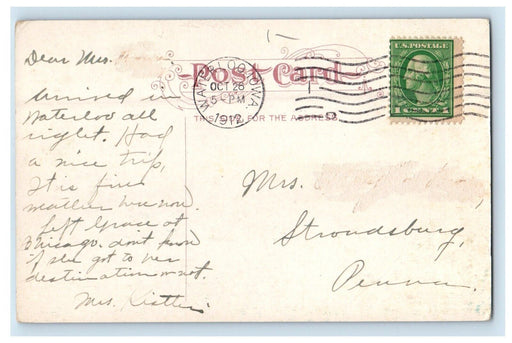 Dear Mrs.
Arrived in
Waterloo all
right. Had
a nice trip,
It is fine
weather here now.
left Grace at
Chicago. dont know
if she got to her
destination or not.
Mrs.
Post Card
THIS SIDE FOR THE ADDRESS
WATERLOO, IOWA.
OCT 26
5 PM
1912
U.S. POSTAGE
1 CENT 1
Mrs.
Stroudsburg,
Penna.